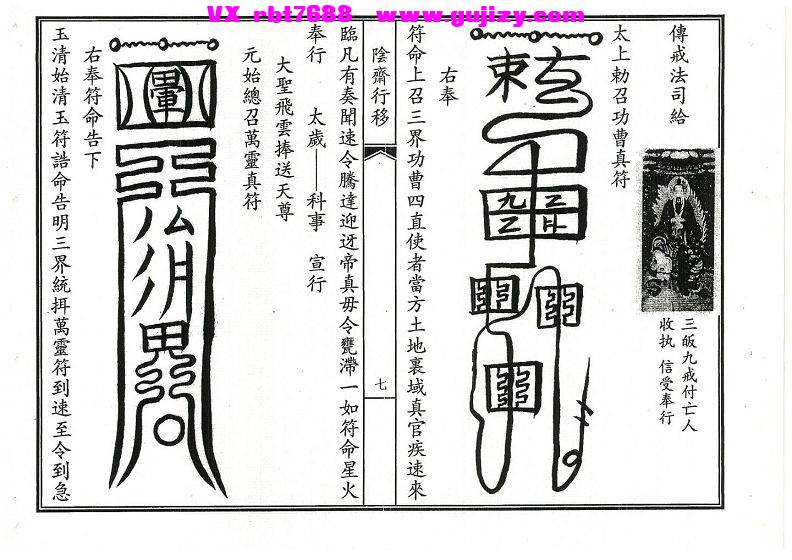 VX rbt7688 www.gujizy.com
傳戒法司給
三皈九戒付亡人
收执 信受奉行
太上勅召功曹真符
右奉
符命上召三界功曹四直使者當方土地裏域真官疾速來
陰齋行移
七
臨凡有奏聞速令騰達迎迓帝真毋令甕滯一如符命星火
奉行 太歲——科事 宣行
大聖飛雲捧送天尊
元始總召萬靈真符
右奉符命告下
玉清始清玉符誥命告明三界統挕萬靈符到速至令到急